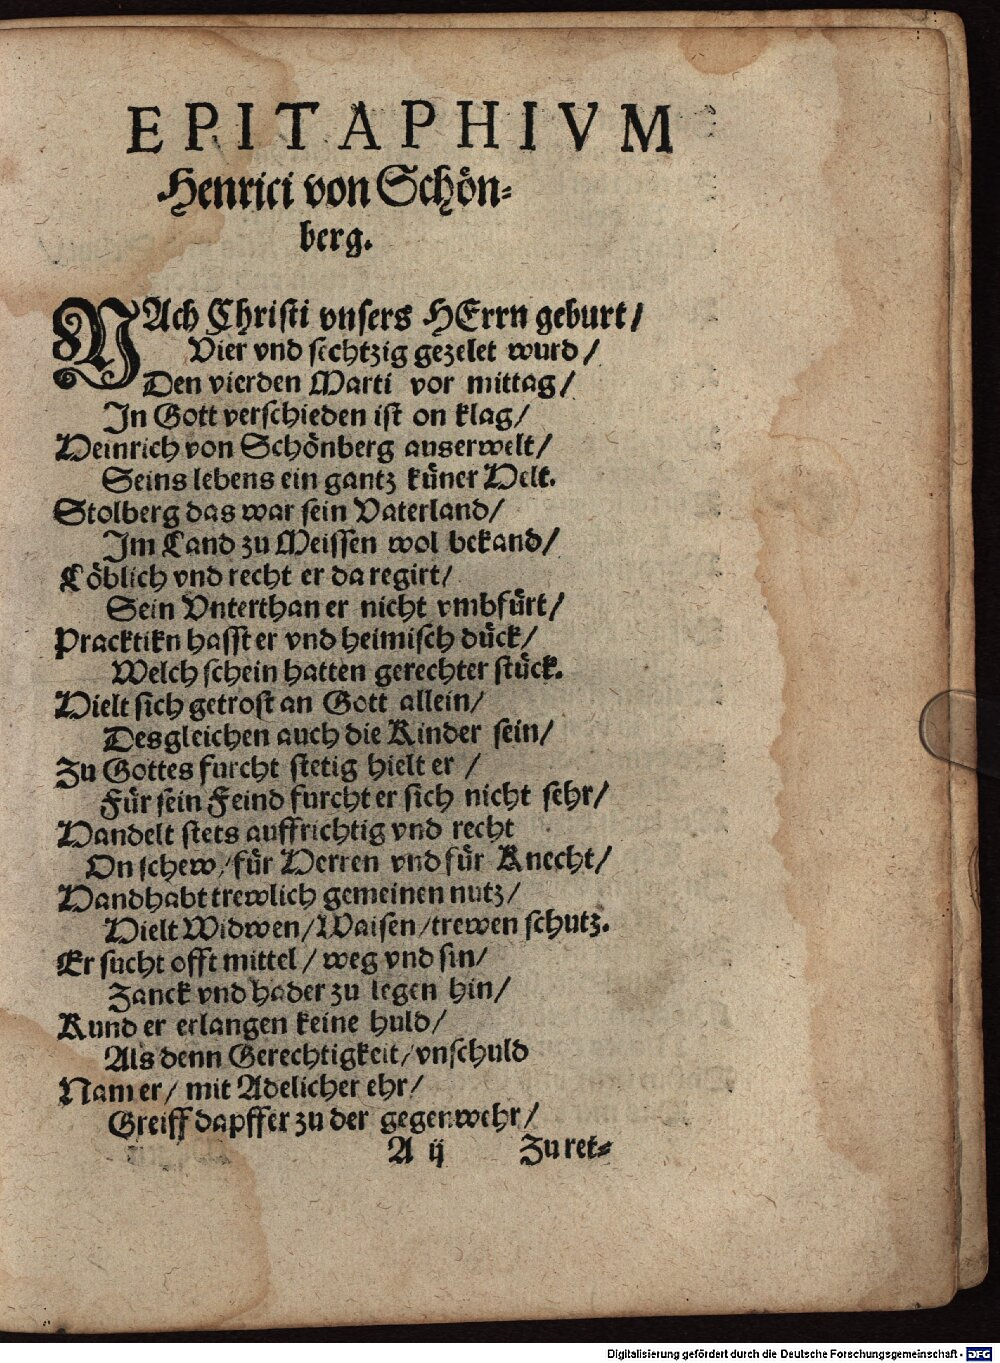 EPITAPHIVM
Henrici von Schön-
berg.
NAch Christi vnsers HErrn geburt/
Vier vnd sechtzig gezelet wurd/
Den vierden Marti vor mittag/
In Gott verschieden ist on klag/
Heinrich von Schönberg auserwelt/
Seins lebens ein gantz küner Helt.
Stolberg das war sein Vaterland/
Im Land zu Meissen wol bekand/
Löblich vnd recht er da regirt/
Sein Vnterthan er nicht vmbfürt/
Pracktikn hasst er vnd heimisch dück/
Welch schein hatten gerechter stück.
Hielt sich getrost an Gott allein/
Desgleichen auch die Kinder sein/
Zu Gottes furcht stetig hielt er/
Für sein Feind furcht er sich nicht sehr/
Handelt stets auffrichtig vnd recht
On schew/für Herren vnd für Knecht/
Handhabt trewlich gemeinen nutz/
Hielt Widwen/Waisen/trewen schutz.
Er sucht offt mittel/weg vnd sin/
Zanck vnd hader zu legen hin/
Kund er erlangen keine huld/
Als denn Gerechtigkeit/vnschuld
Nam er/mit Adelicher ehr/
Greiff dapffer zu der gegenwehr/
A ij Zu ret-
Digitalisierung gefördert durch die Deutsche Forschungsgemeinschaft - DFG